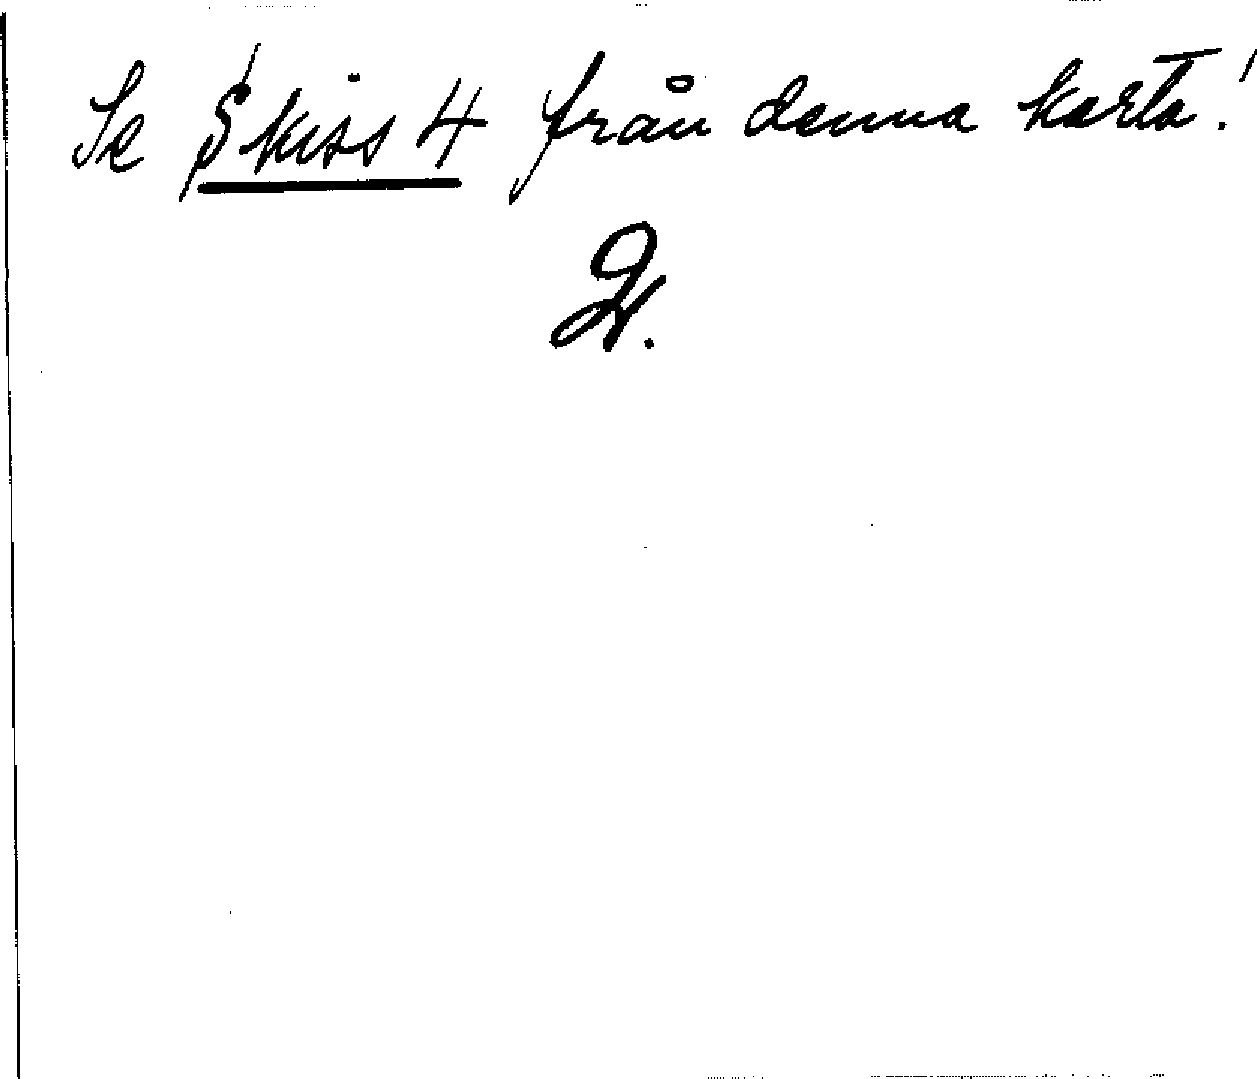 Se Skiss 4 från denna karta!